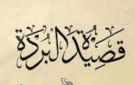 قصيدة البردة